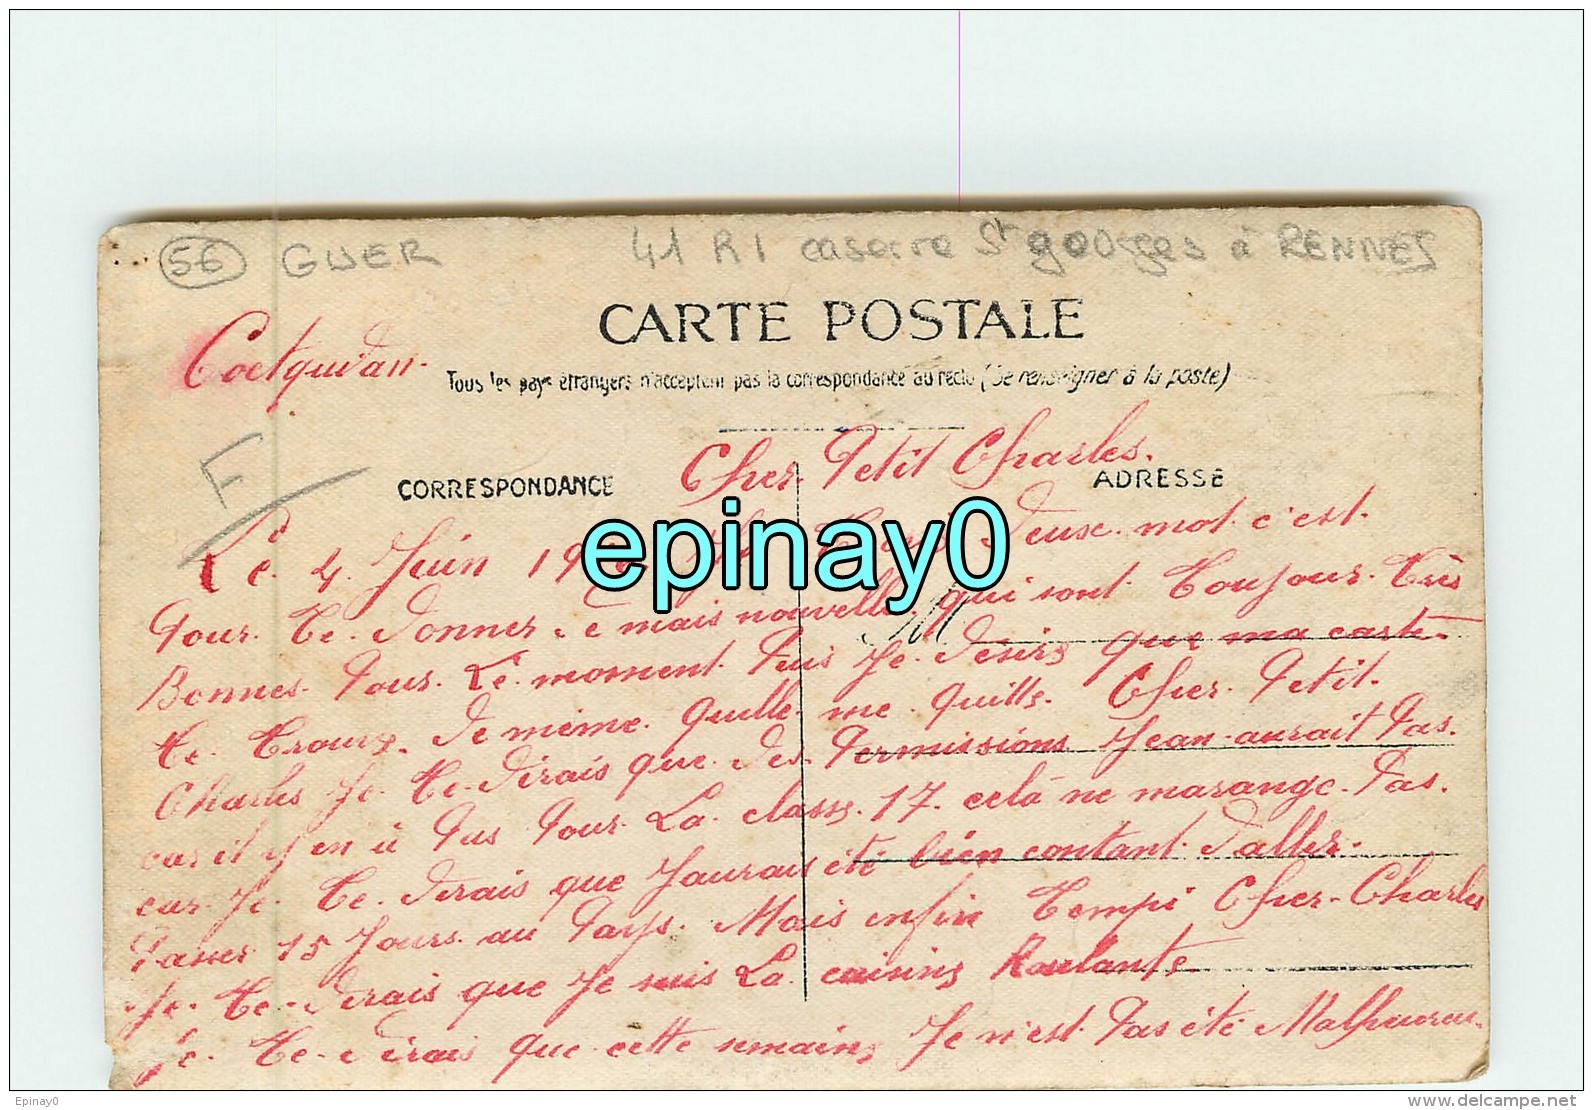 56 GUER 41 RI caserne St georges à RENNES
CARTE POSTALE
Coetquidan.
Tous les pays étrangers n'acceptent pas la correspondance au recto (Se renseigner à la poste)
F
Cher Petit Charles.
CORRESPONDANCE ADRESSE
Le 4 Juin 19 Deuse mot c'est.
epinay0
Pour. Te. donner. De mais nouvelle. qui sont Toujour. Très
Bonnes. Pour. Le. moment. Puis Je. desire que ma carte
te. trouve. de même. quelle. me. quitte. Cher. Petit.
Charles Je. te. dirais que. des. Permissions Jean aurait Pas.
car il y en à Pas Pour. La. classe. 17. celà ne marange. Pas.
car. Je. te. dirais que Jaurais été bien contant daller.
Passer 15 Jours. au Pays. Mais enfin tempi Cher. Charles
Je. te. dirais que Je suis La. cuisine Roulante
Je. te. dirais que cette semaine Je n'est Pas été Malheureu.
Epinay0
www.delcampe.net